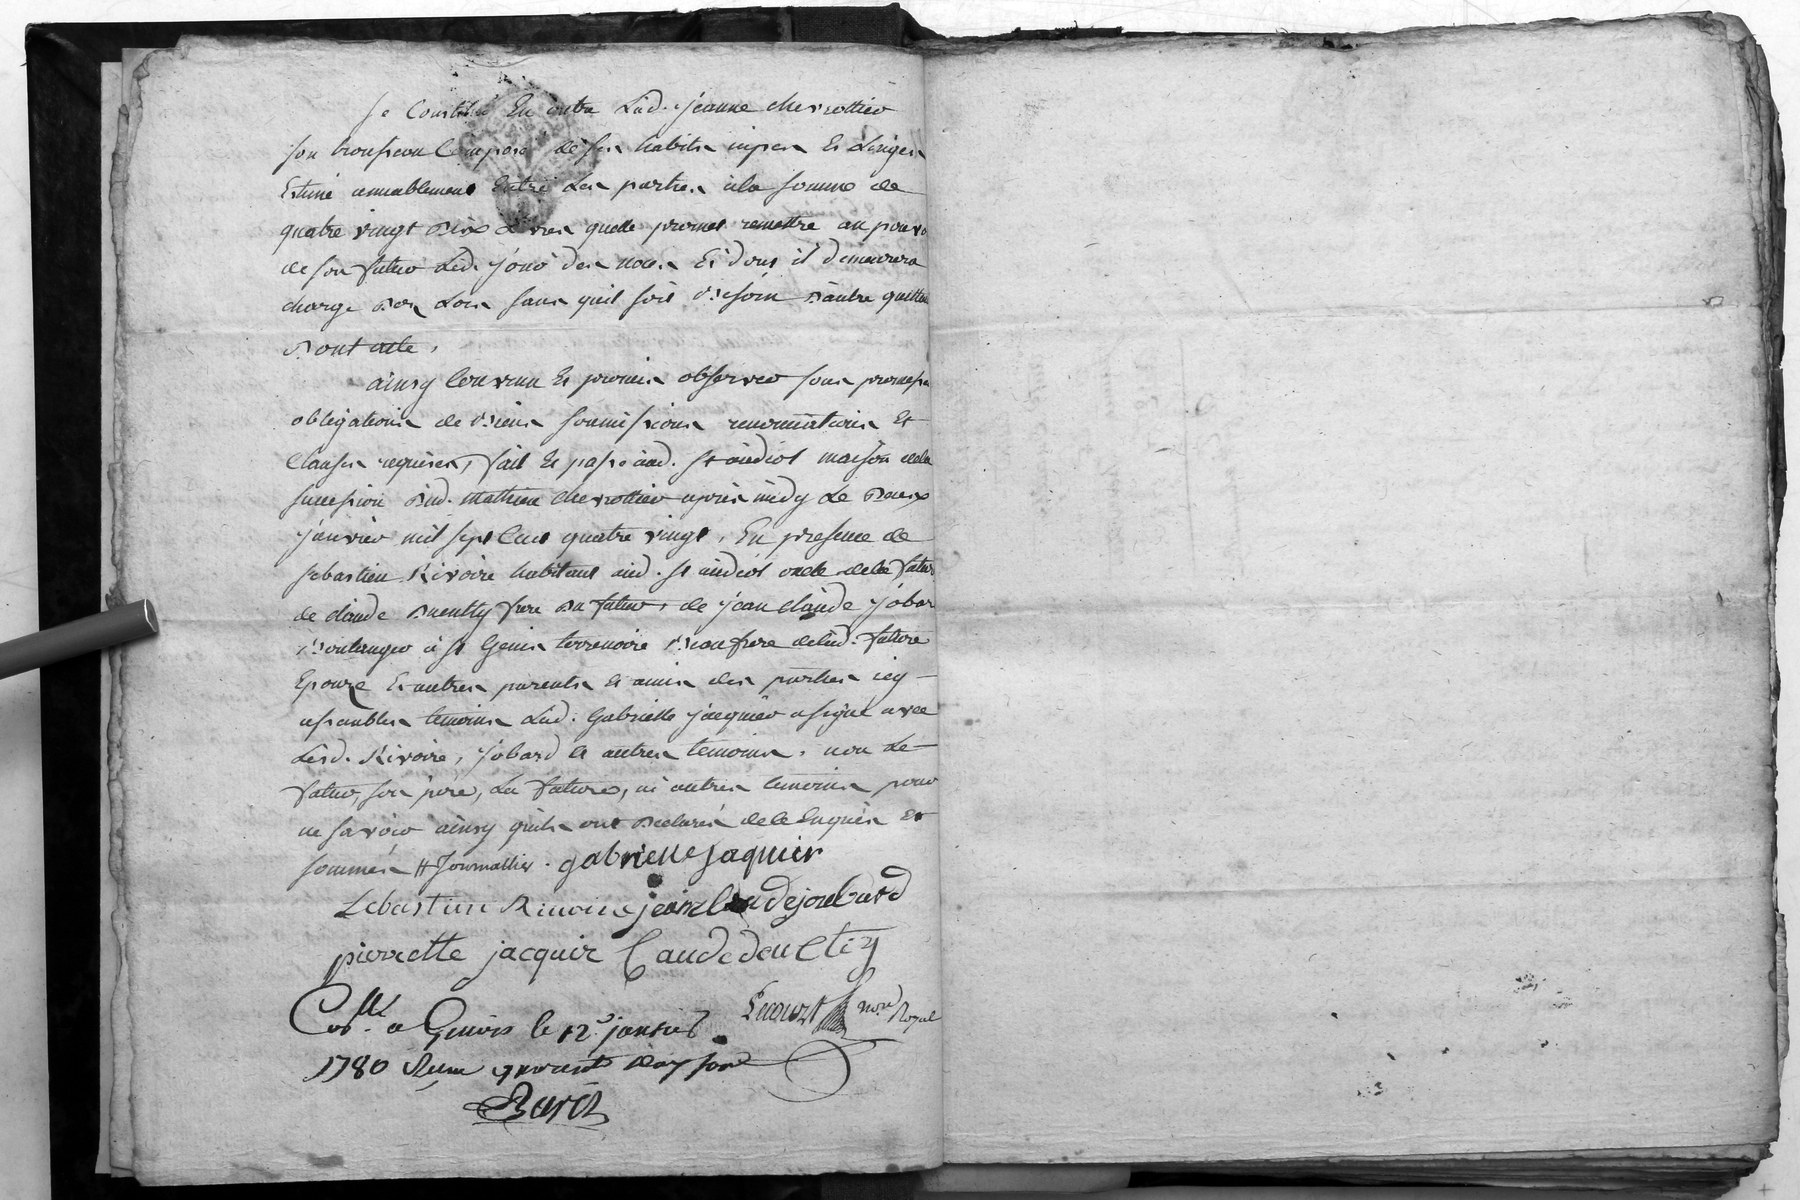 Se Constitue En outre Lad. jeanne chevrottier
son trousseau Composé de ses habits nipes Et Linges
Estimé amiablement Entre Les parties à la somme de
quatre vingt Dix Livres quelle promet remettre au pouvoir
de son futur Led. jour des noces Et dont il demeurera
chargé Des Lors sans quil soit Besoin D'autre quittance
Dont acte.
ainsy Convenu Et promis observer sous promesses
obligations de Biens soumissions renonciations Et
Clauses requises, fait Et passé aud. St andiol maison dela
succession Dud. mathieu chevrottier après midy Le Deux
janvier mil sept Cent quatre vingt, En presence de
sebastien Rivoire habitant aud. St andiol oncle dela future
de claude frere Du futur, de jean claude jobard
Boulanger à St Genis terrenoire Beaufrere delad. future
Epouze Et autres parents Et amis des parties icy
assemblés temoins Lad. Gabrielle jacquier a signé avec
Lesd. Rivoire, jobard Et autres temoins, non Le
futur son père, La future, ni autres temoins pour
ne savoir ainsy quils ont Declarés dele Enquis Et
sommés # Journallier. gabrielle jaquier
Sebastien Rivoire jean claude joubard
pierrette jacquier Claude
nore Royal
Collé a Genis le 12e janvier
1780 Reçu quarante